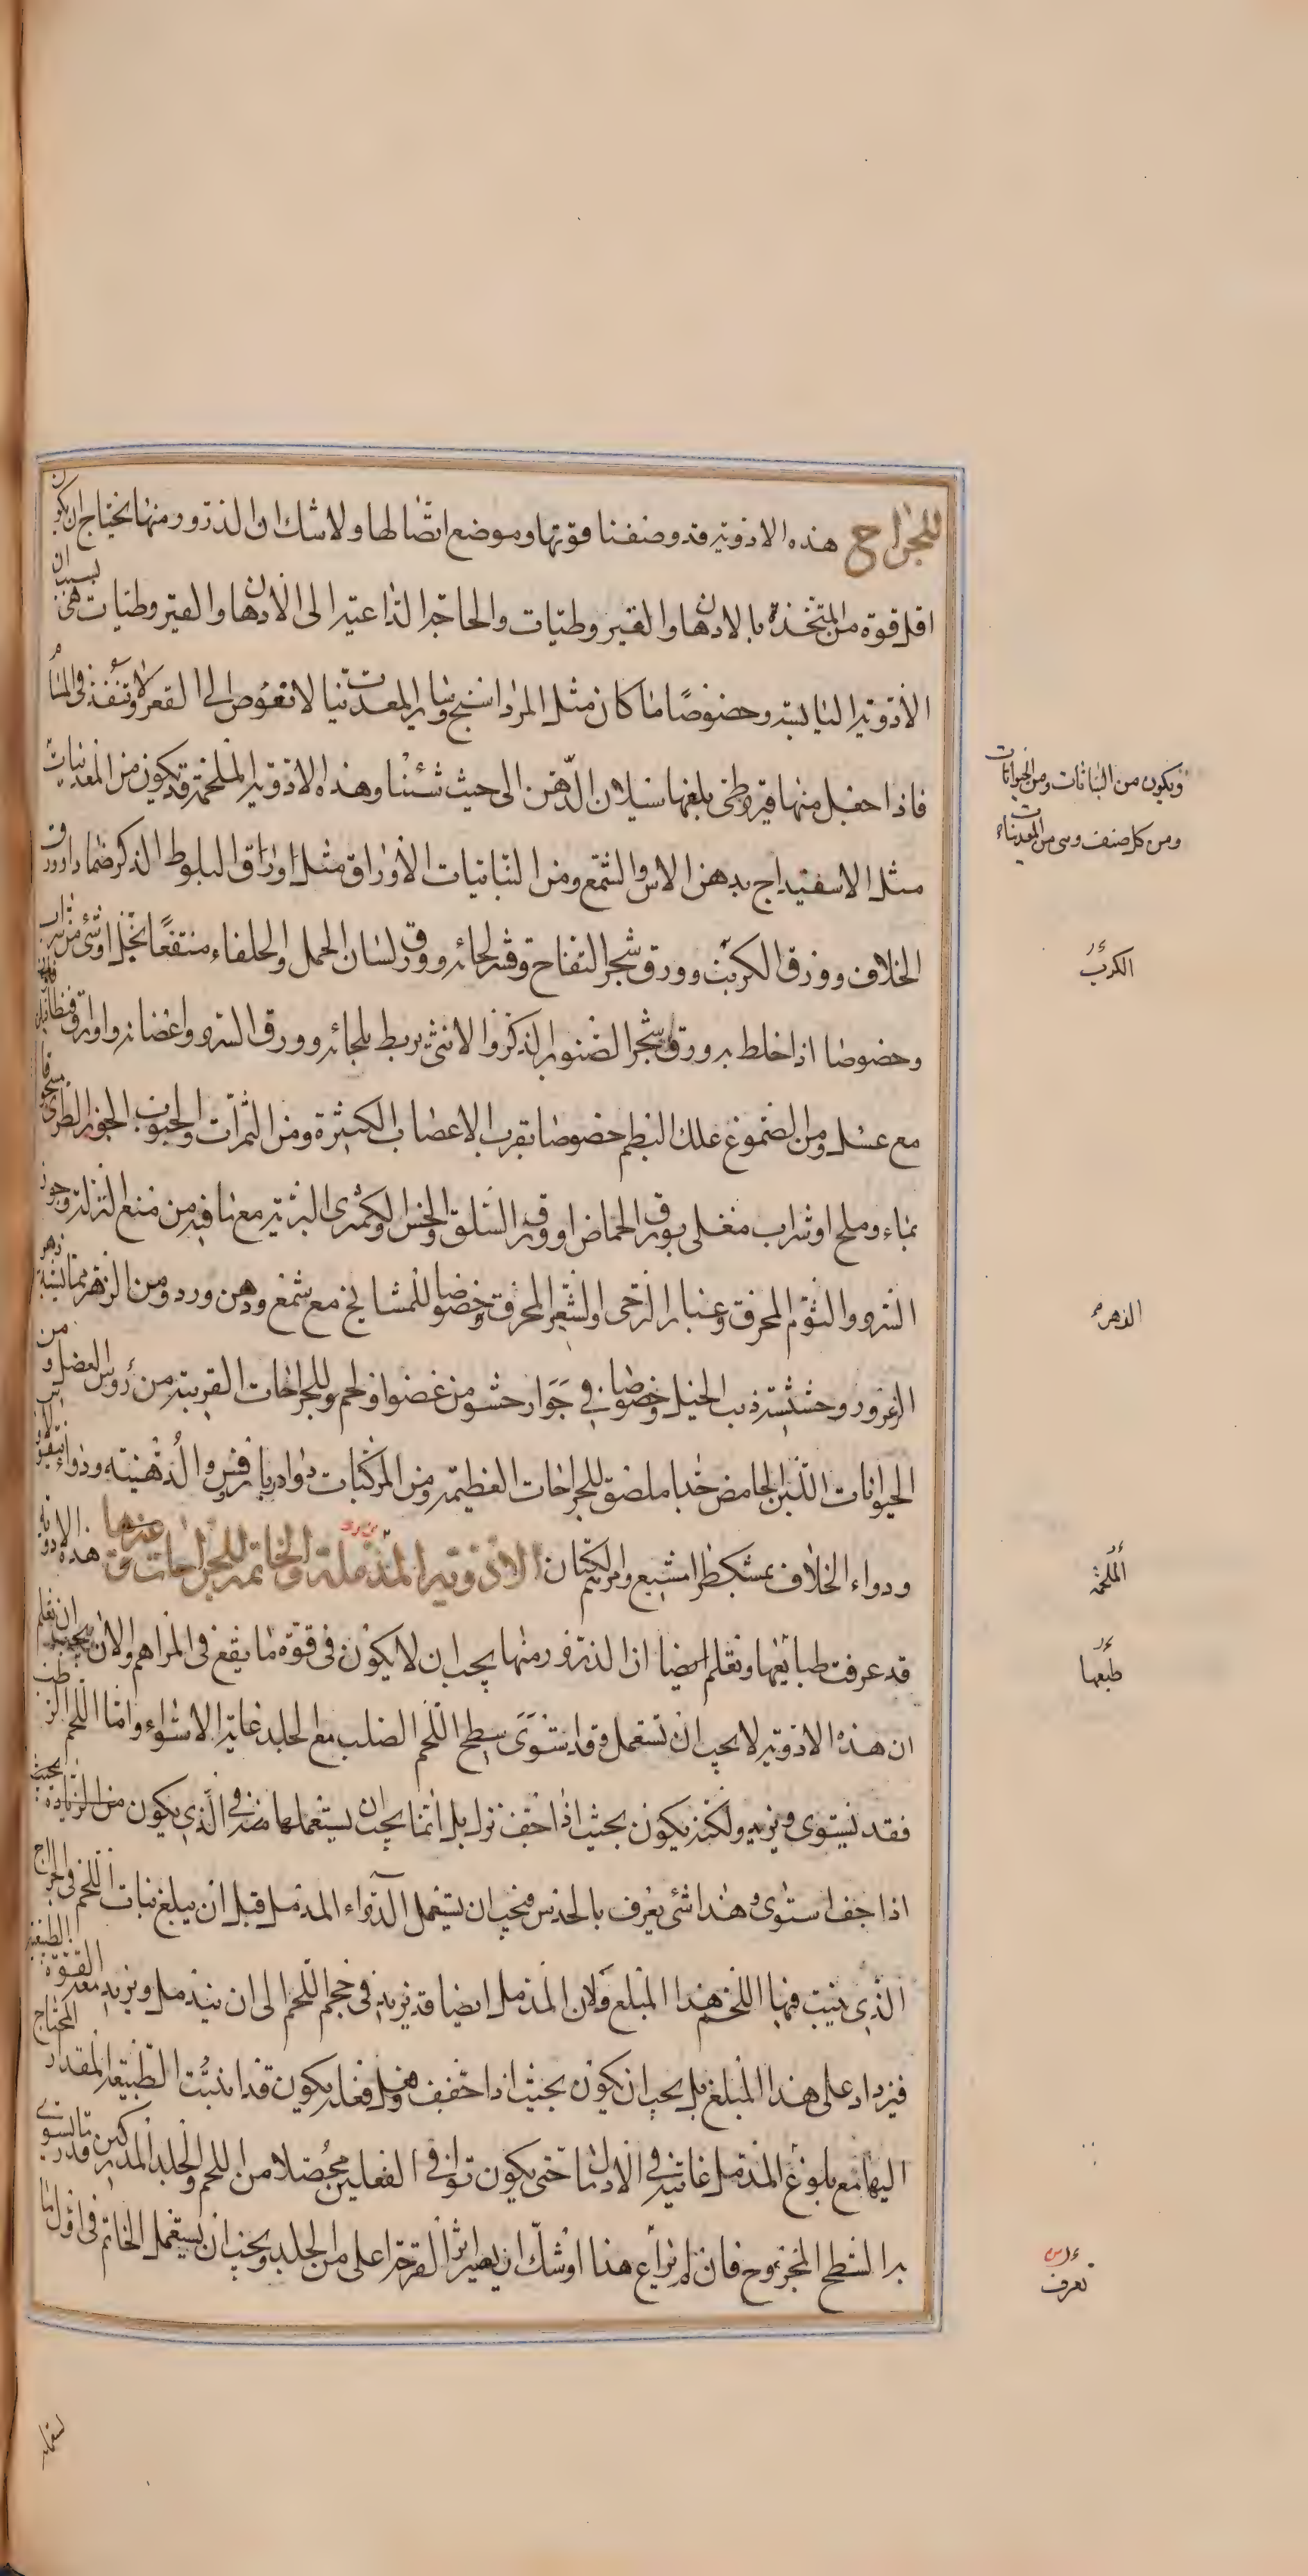 للجراح هذه الادوية قد وصفنا قوتها وموضع اتصالها ولا شك ان الذرور منها يحتاج ان يكون
اقل قوة من المتخذة بالادهان والقيروطيات والحاجة الداعية الى الادهان والقيروطيات هي بسبب ان
الادوية اليابسة وخصوصا ما كان مثل المرداسنج وساير المعدنيات لا تغوص الى القعر ولا تنفذ في المسام
فاذا جعل منها قيروطي بلغها سيلان الدهن الى حيث شئنا وهذه الادوية الملحمة قد يكون من المعدنيات
مثل الاسفيداج بدهن الاس والشمع ومن النباتيات الاوراق مثل اوراق البلوط الذكر ضمادا وورق
الخلاف وورق الكرنب وورق شجر التفاح وقشر لحائه وورق لسان الحمل والحلفاء منتفعا بخل او شئ من شراب
وخصوصا اذا خلط به ورق شجر الصنوبر الذكر والانثى يربط بلحائه وورق السرو واغصانه واوراق قنطافلن
مع عسل ومن الصموغ علك البطم خصوصا بقرب الاعصاب الكثيرة ومن الثمرات والحبوب الجوز الطري مسحوقا
بماء وملح او شراب مغلى بورق الحماض او ورق السلق والخس والكمثرى البرية مع ما فيه من منع النزلة وجوز
السرو والثوم المحرق وغبار الرحى والشعير المحرق وخصوصا للمشايخ مع شمع ودهن ورد ومن الزهر
الزعرور وحشيشة ذنب الخيل وخصوصا في جوار حشو من عضو او لحم وللجراحات القريبة من رؤس العضل ومن
الحيوانات اللبن الحامض جدا ملصق للجراحات العظيمة ومن المركبات دواء والدهنية ودواء
ودواء الخلاف بمشكطرامشيع ومر الكتان الادوية المدملة والخاتمة للجراحات وغيرها هذه الادوية
قد عرفت طبايعها وتعلم ايضا ان الذرور منها يجب ان لا يكون في قوة ما يقع في المراهم والان يجب ان تعلم
ان هذه الادوية لا يجب ان تستعمل وقد استوى سطح اللحم الصلب مع الجلد غاية الاستواء واما اللحم الرطب
فقد يستوى ويزيد ولكنه يكون بحيث اذا اجف نزل بل انما يجب ان يستعملها منه في الذي يكون من الزيادة بحيث
اذا جف استوى وهذا شئ يعرف بالحدس فيجب ان يستعمل الدواء المدمل قبل ان يبلغ نبات اللحم في الجراح
الذي ينبت فيها اللحم هذا المبلغ ولان المدمل ايضا قد يزيد في حجم اللحم الى ان يندمل ويزيد معه القوة الطبيعية
فيزداد على هذا المبلغ بل يجب ان يكون بحيث اذا جفف وفعل فعله يكون قد انبتت الطبيعة المقدار المحتاج
اليها مع بلوغ المدمل غايته في الادمال حتى يكون توافي الفعلين محصلا من اللحم والجلد المدركين قدر ما يستوي
به السطح المجروح فان لم يراع هذا اوشك ان يصير اثر القرحة اعلى من الجلد ويجب ان يستعمل الخاتم في اول ما
ويكون من النباتات ومن الحيوانات
ومن كل صنف وهى من المعدنيات
الكرنب
الزهر
الملحمة
طبعها
تعرف